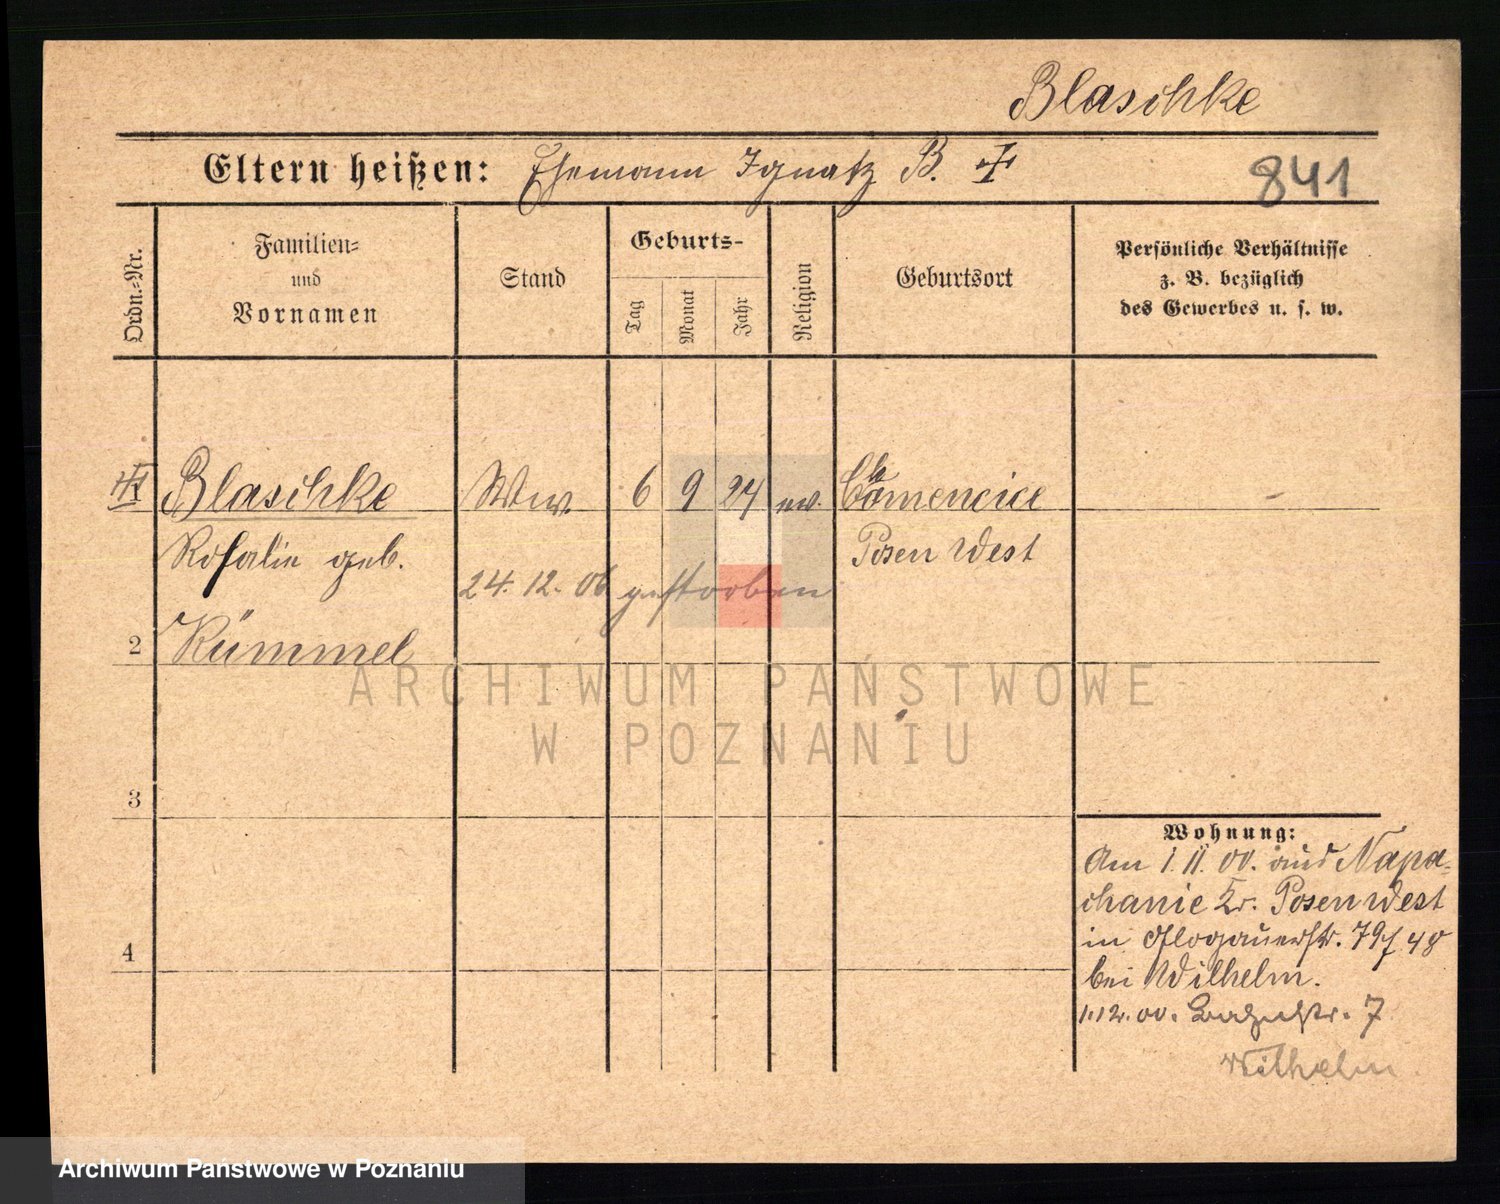 Blaschke
Eltern heißen: Ehemann Ignatz B. ✝
841
Ordn.-Nr.
Familien-
und
Vornamen
Stand
Geburts-
Tag
Monat
Jahr
Religion
Geburtsort
Persönliche Verhältnisse
z. B. bezüglich
des Gewerbes u. s. w.
1 Blaschke Ww. 6 9 24 ev. –
Rosalie geb. Posen West
24. 12. 06 gestorben
2 Kümmel
ARCHIWUM PAŃSTWOWE
W POZNANIU
3
Wohnung:
Am 1. 11. 00. aus Napa-
chanie Kr. Posen West
in Glogauerstr. 79
4
bei Wilhelm.
1.12.00. 7
Wilhelm
Archiwum Państwowe w Poznaniu